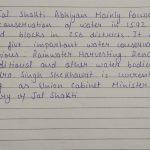 Jal Shakti Abhiyan Mainly Focus
conservation of water in 1592
blocks in 256 districts. It
five important water conserv
Rainwater Harvesting
ditional and other water bodie
Singh Shekhawat is current
as Union Cabinet Minister
of Jal Shakti.